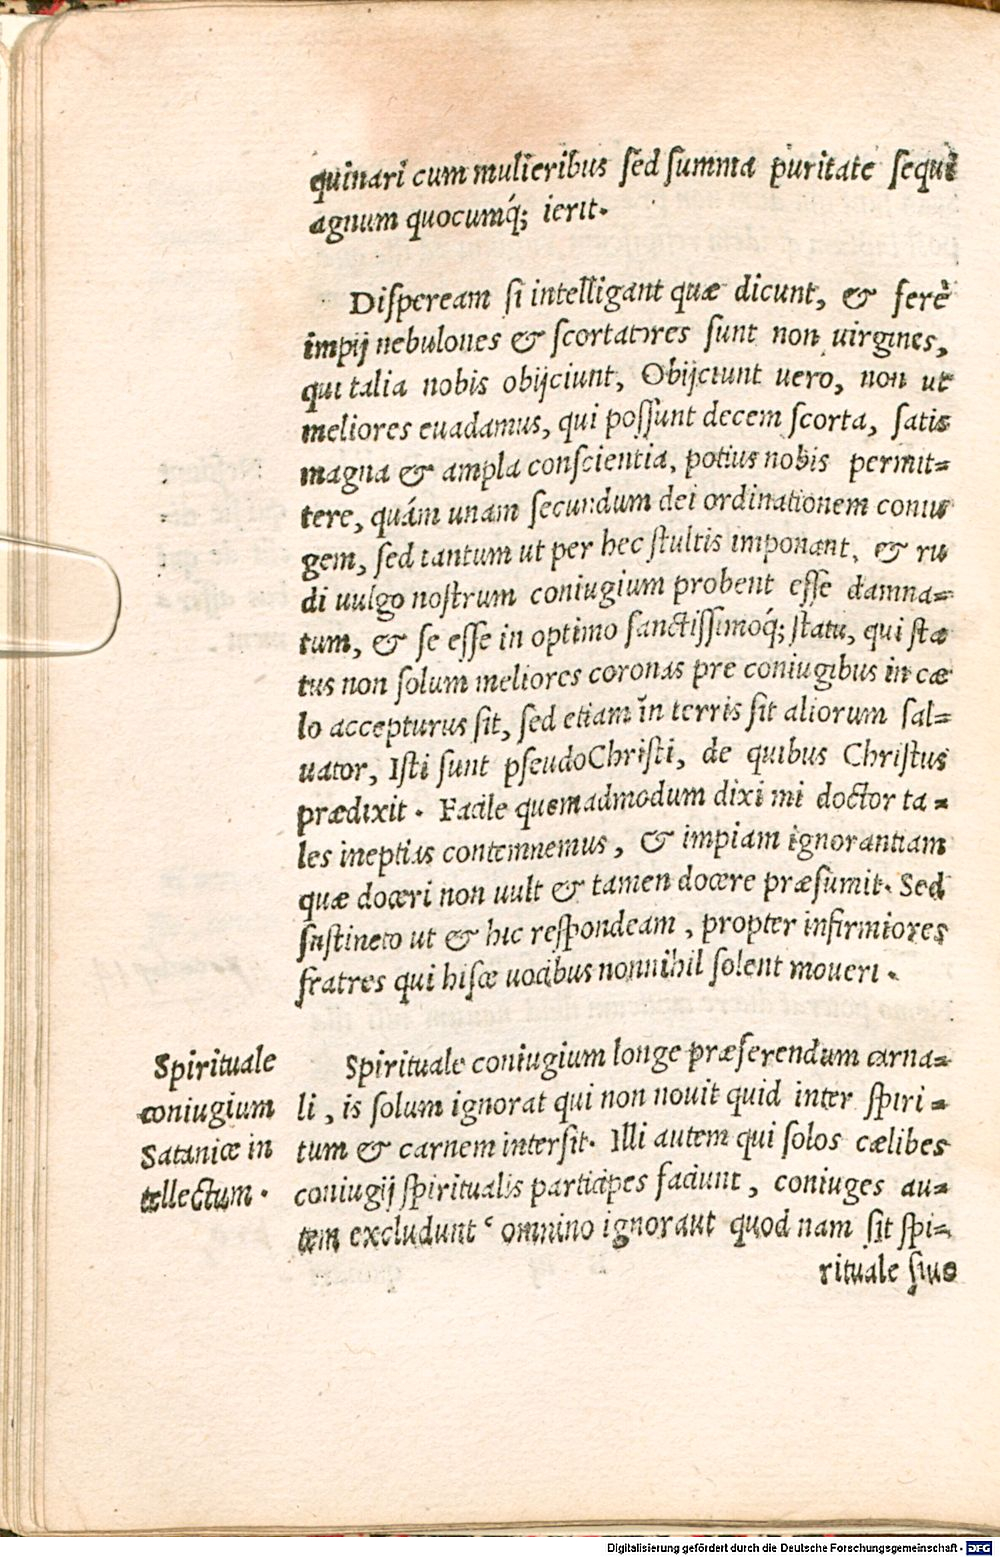 quinari cum mulieribus sed summa puritate sequi
agnum quocumq́; ierit.
Dispeream si intelligant quæ dicunt, & ferè
impij nebulones & scortatores sunt non uirgines,
qui talia nobis obijciunt, Obijciunt uero, non ut
meliores euadamus, qui possunt decem scorta, satis
magna & ampla conscientia, potius nobis permit=
tere, quám unam secundum dei ordinationem coniu
gem, sed tantum ut per hec stultis imponant, & ru
di uulgo nostrum coniugium probent esse damna=
tum, & se esse in optimo sanctissimoq́; statu, qui sta
tus non solum meliores coronas pre coniugibus in cæ
lo accepturus sit, sed etiam in terris sit aliorum sal=
uator, Isti sunt pseudoChristi, de quibus Christus
prædixit. Facile quemadmodum dixi mi doctor ta=
les ineptias contemnemus, & impiam ignorantiam
quæ doceri non uult & tamen docere præsumit. Sed
sustineto ut & hic respondeam, propter infirmiores
fratres qui hisce uocibus nonnihil solent moueri.
Spirituale
coniugium
Satanice in
tellectum.
Spirituale coniugium longe præferendum carna=
li, is solum ignorat qui non nouit quid inter spiri=
tum & carnem intersit. Illi autem qui solos cælibes
coniugij spiritualis participes faciunt, coniuges au=
tem excludunt omnino ignorant quod nam sit spi=
rituale siue
Digitalisierung gefördert durch die Deutsche Forschungsgemeinschaft - DFG